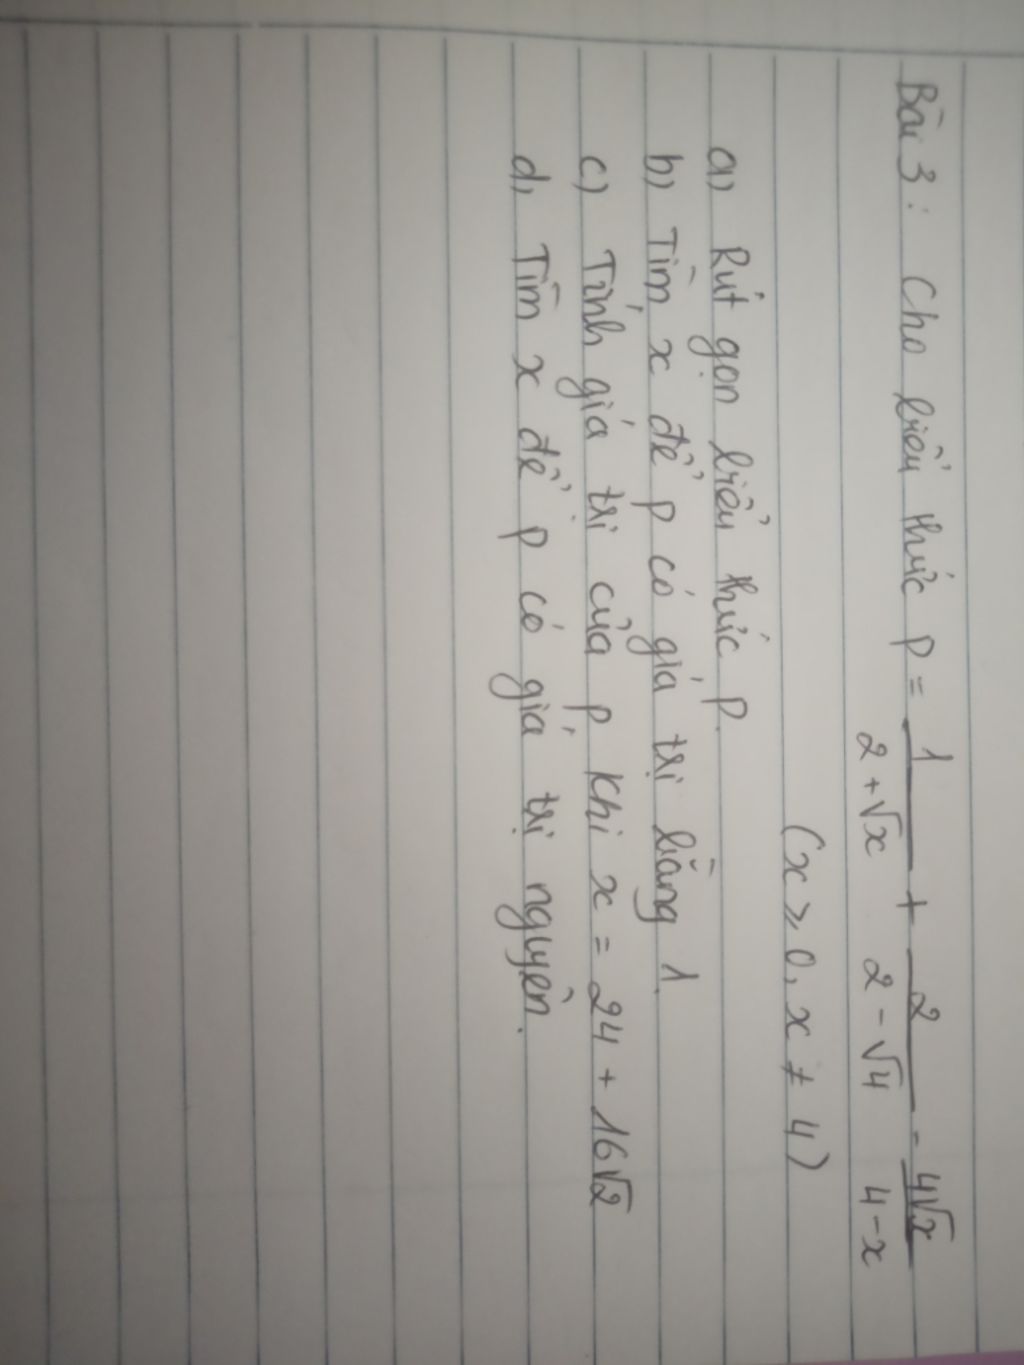 Bài 3: Cho biểu thức P = 1/(2 + √x) + 2/(2 - √4) - 4√x/(4 - x)
(x ≥ 0, x ≠ 4)
a) Rút gọn biểu thức P.
b) Tìm x để P có giá trị bằng 1.
c) Tính giá trị của P khi x = 24 + 16√2
d) Tìm x để P có giá trị nguyên.